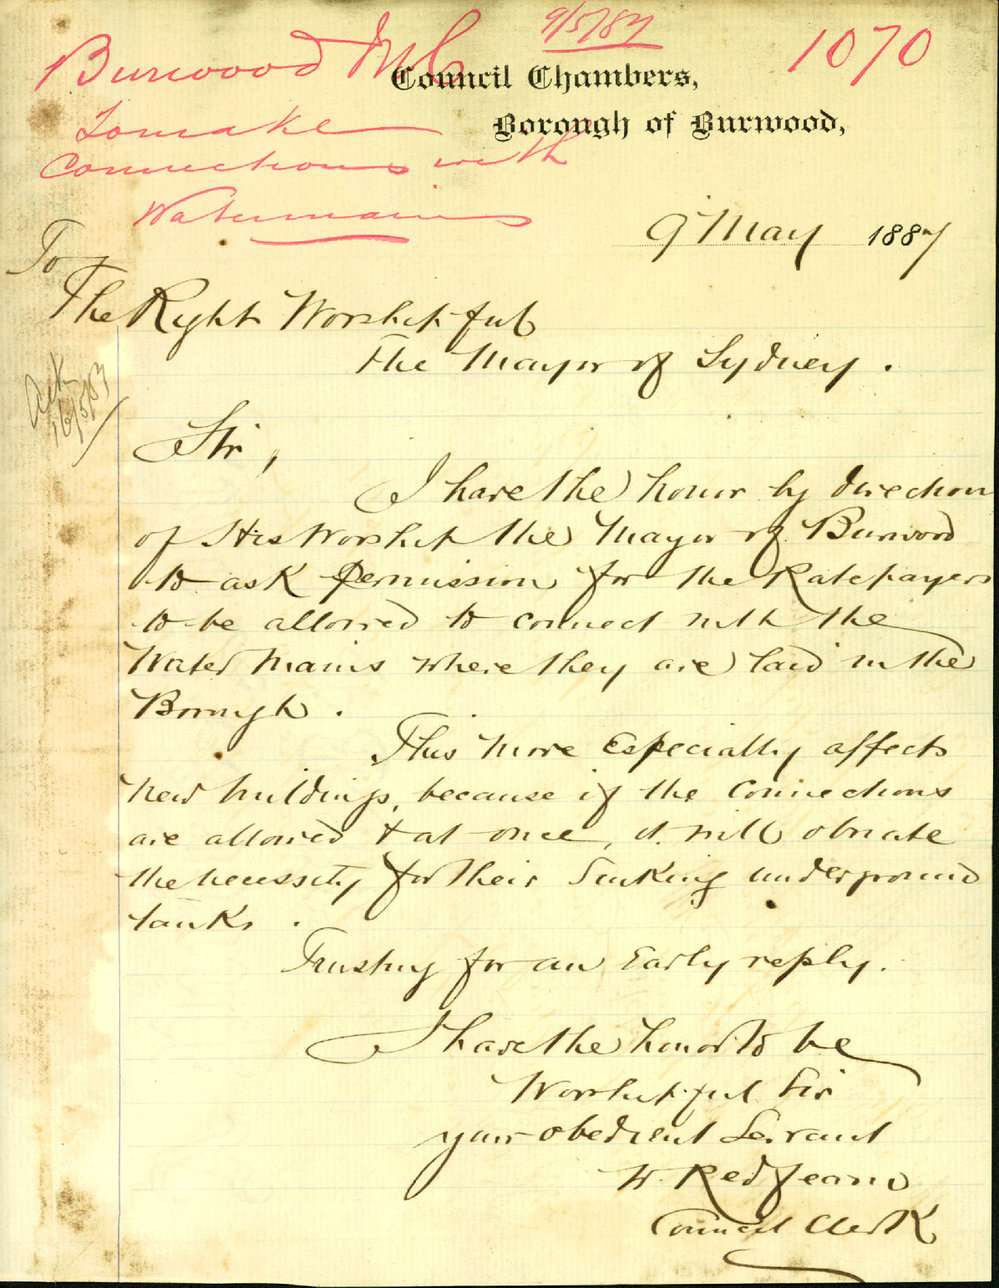 9/5/87
1070
Burwood M C
To make
Connections with
Watermains
Council Chambers,
Borough of Burwood,
9 May 1887
To
The Right Worshipful
The Mayor of Sydney.
Ack
16/5/83
Sir,
I have the honor by direction
of His Worship the Mayor of Burwood
to ask permission for the Ratepayers
to be allowed to connect with the
Water Mains where they are laid in the
Borough.
This more especially affects
new buildings, because if the connections
are allowed & at once, it will obviate
the necessity for their sinking underground
tanks.
Trusting for an Early reply.
I have the honor to be
Worshipful Sir
your obedient Servant
W. Redfearn
Council Clerk